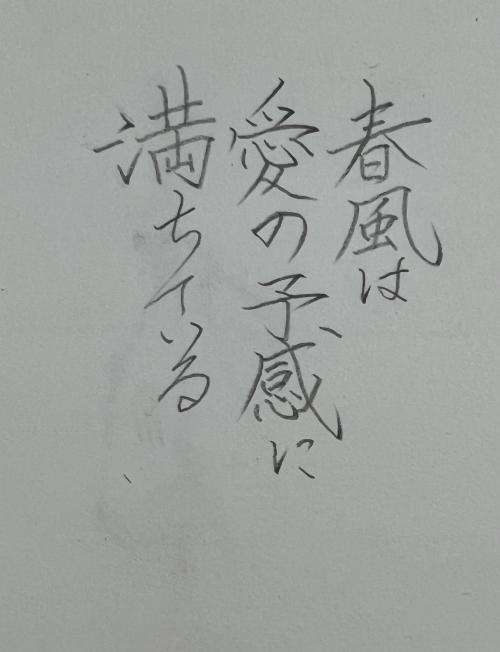 春風は
愛の予感に
満ちている